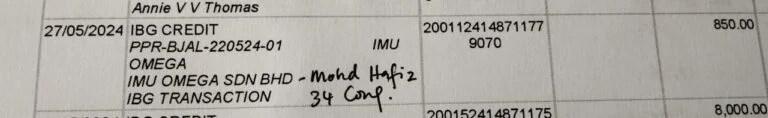 Annie V V Thomas
27/05/2024 IBG CREDIT 200112414871177 850.00
PPR-BJAL-220524-01 IMU 9070
OMEGA
IMU OMEGA SDN BHD - Mohd Hafiz
IBG TRANSACTION 34 Cong.
200152414871175 8,000.00